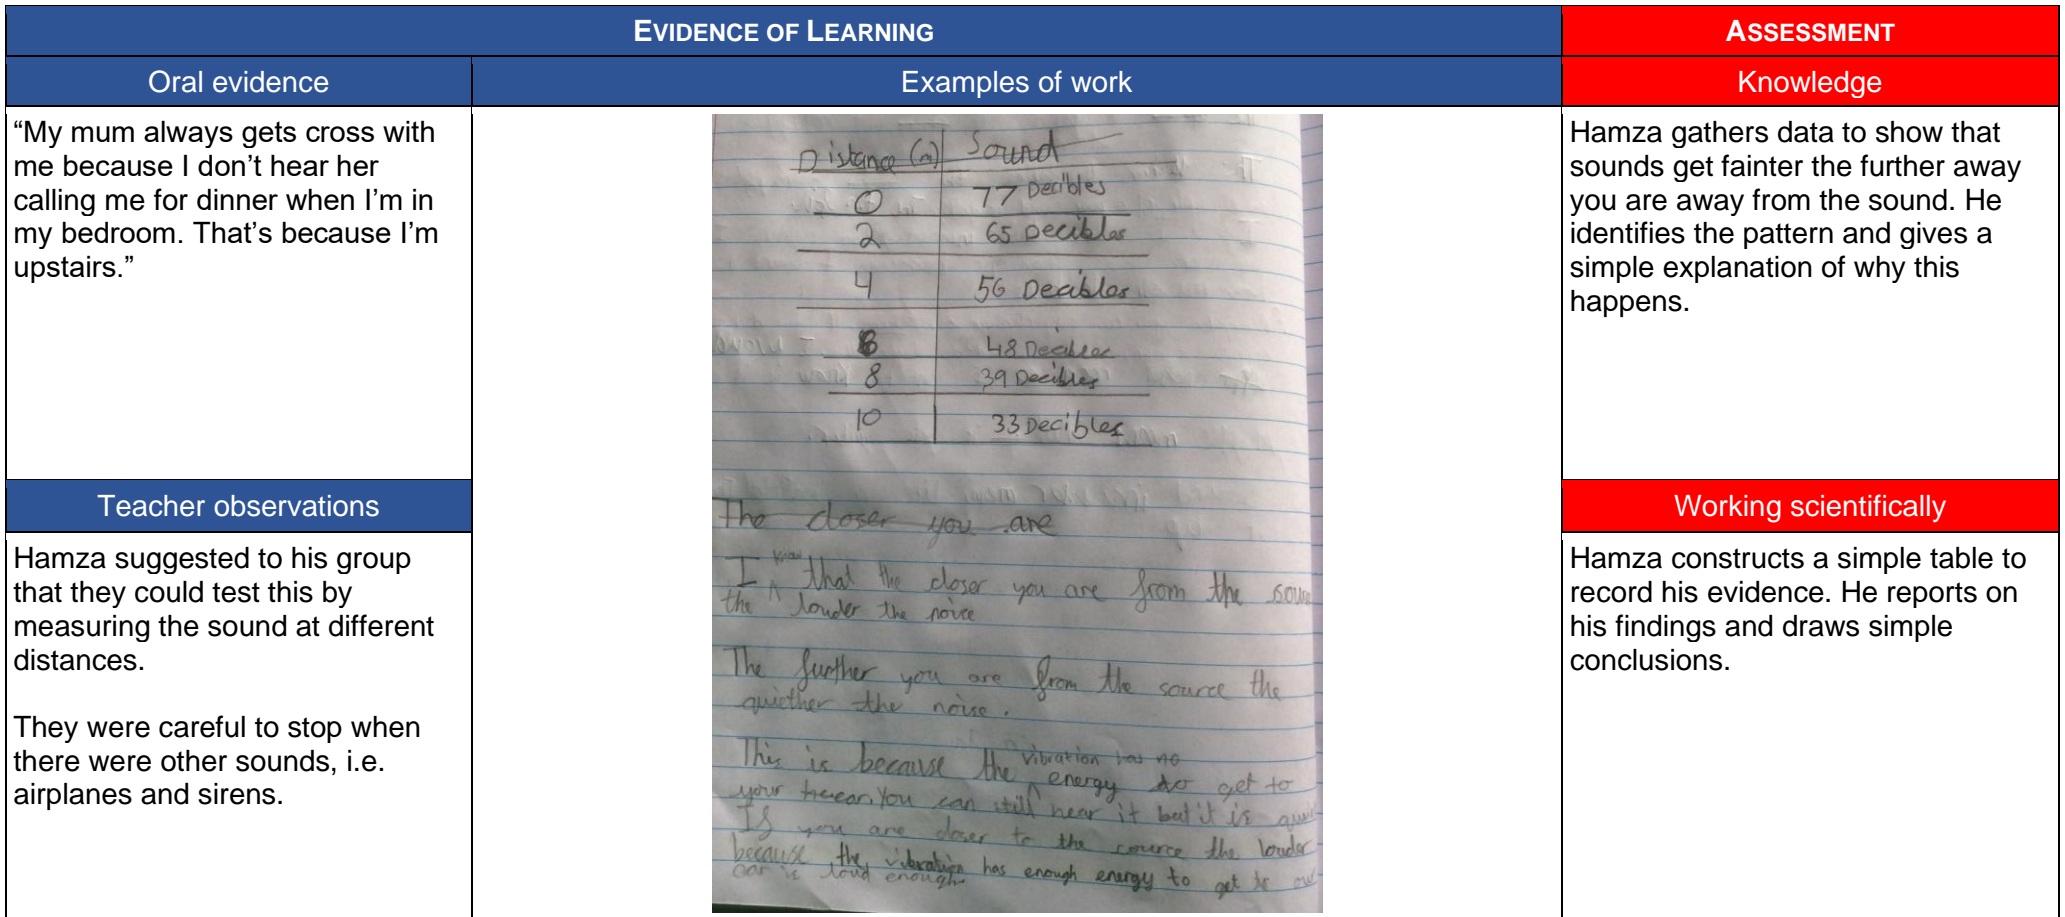 EVIDENCE OF LEARNING
ASSESSMENT
Oral evidence
Examples of work
Knowledge
“My mum always gets cross with
me because I don’t hear her
calling me for dinner when I’m in
my bedroom. That’s because I’m
upstairs.”
Teacher observations
Hamza suggested to his group
that they could test this by
measuring the sound at different
distances.
They were careful to stop when
there were other sounds, i.e.
airplanes and sirens.
Distance (m) Sound
0 77 Decibles
2 65 Decibles
4 56 Decibles
6 48 Decibles
8 39 Decibles
10 33 Decibles
The closer you are
I know that the closer you are from the
the louder the noise
The further you are from the source the
quiether the noise.
This is because the vibration has no energy to get to
your You can still hear it but it is
If you are closer to the source the louder
because the vibration has enough energy to get to
ear is loud enough
Hamza gathers data to show that
sounds get fainter the further away
you are away from the sound. He
identifies the pattern and gives a
simple explanation of why this
happens.
Working scientifically
Hamza constructs a simple table to
record his evidence. He reports on
his findings and draws simple
conclusions.